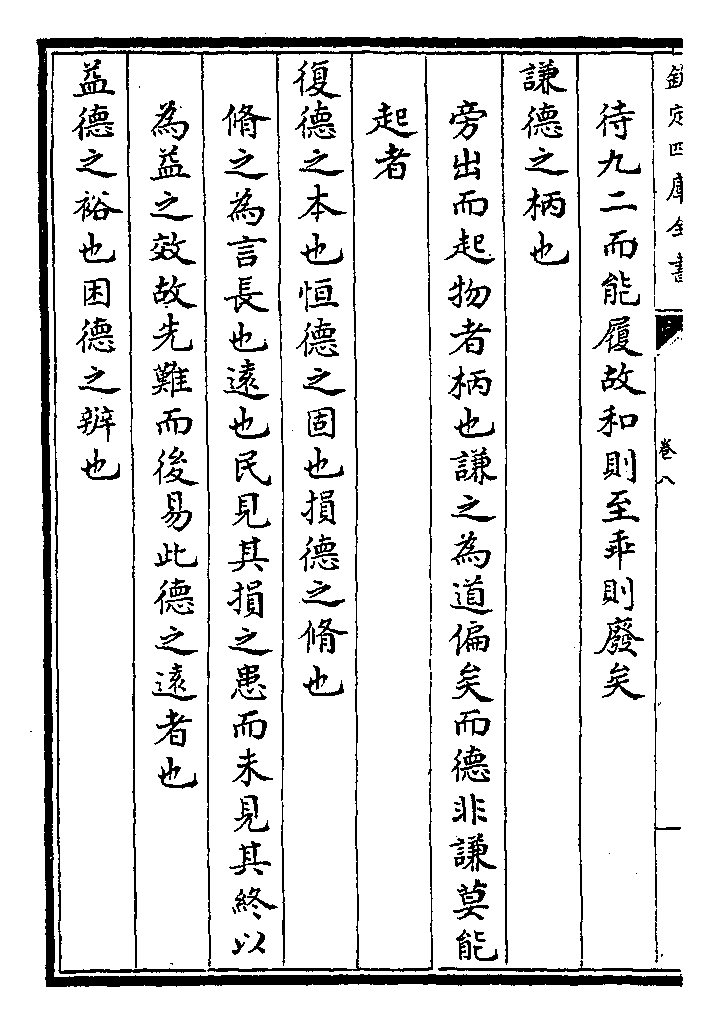 欽定四庫全書
卷八
待九二而能履故和則至乖則廢矣
謙德之柄也
旁出而起物者柄也謙之為道偏矣而德非謙莫能
起者
復德之本也恒德之固也損德之脩也
脩之為言長也遠也民見其損之患而未見其終以
為益之效故先難而後易此德之遠者也
益德之裕也困德之辨也